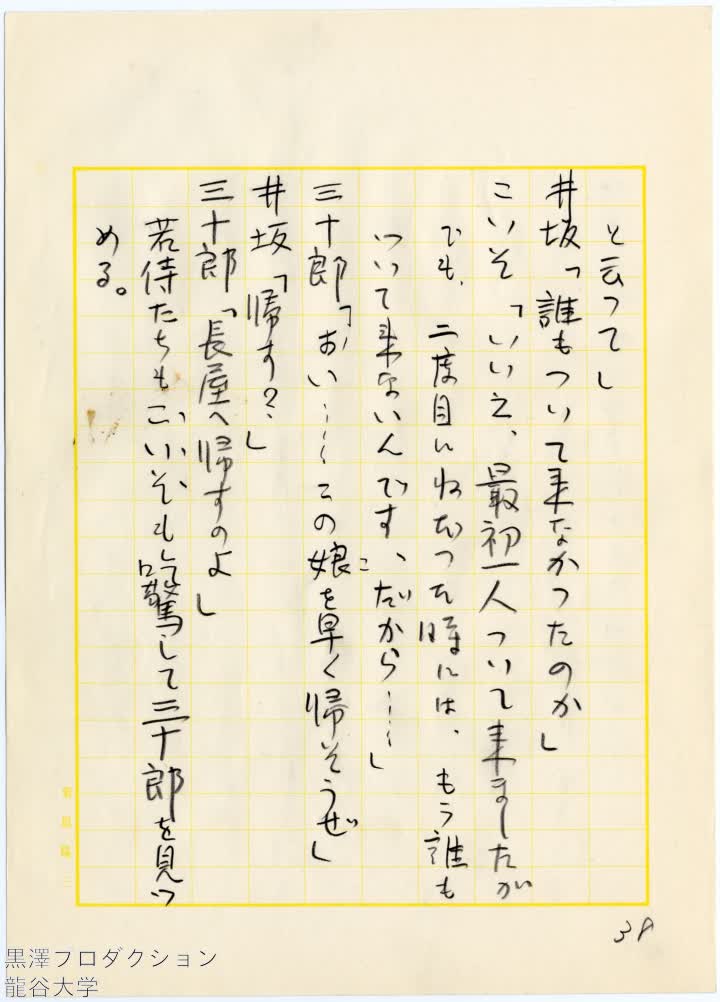 と云って」
井坂「誰もついて来なかつたのか」
こいそ「いいえ、最初一人ついて来ましたが
でも、二度目に
時には、もう誰も
ついて来ないんです、だから……」
三十郎「おい……この娘を早く帰そうぜ」
井坂「帰す？」
三十郎「長屋へ帰すのよ」
若侍たちもこいそも吃驚して三十郎を見つ
める。
38
黒澤プロダクション
龍谷大学